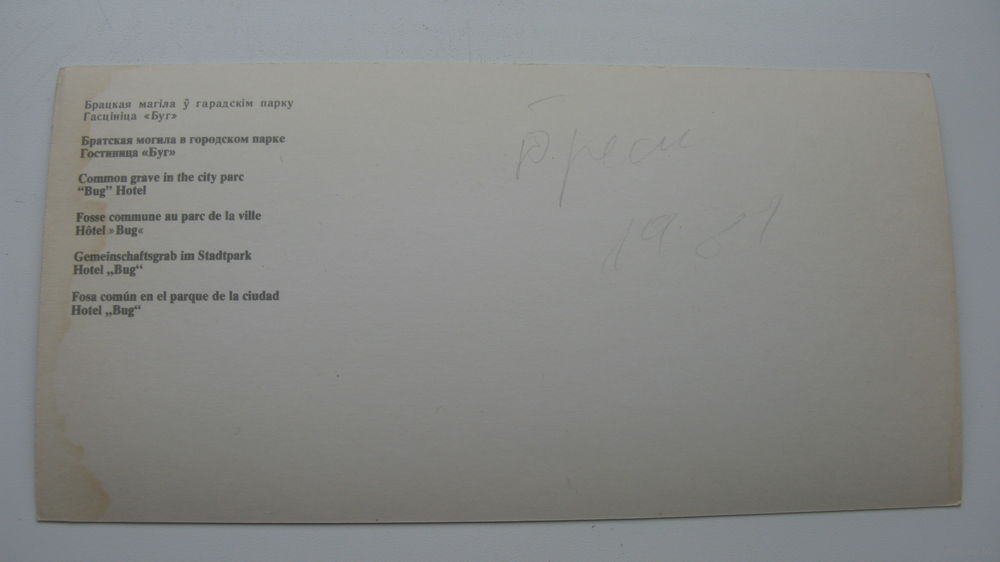 Брацкая магіла ў гарадскім парку
Гасцініца «Буг»
Братская могила в городском парке
Гостиница «Буг»
Common grave in the city parc
“Bug” Hotel
Fosse commune au parc de la ville
Hôtel »Bug«
Gemeinschaftsgrab im Stadtpark
Hotel „Bug“
Fosa común en el parque de la ciudad
Hotel „Bug“
Брест
1981